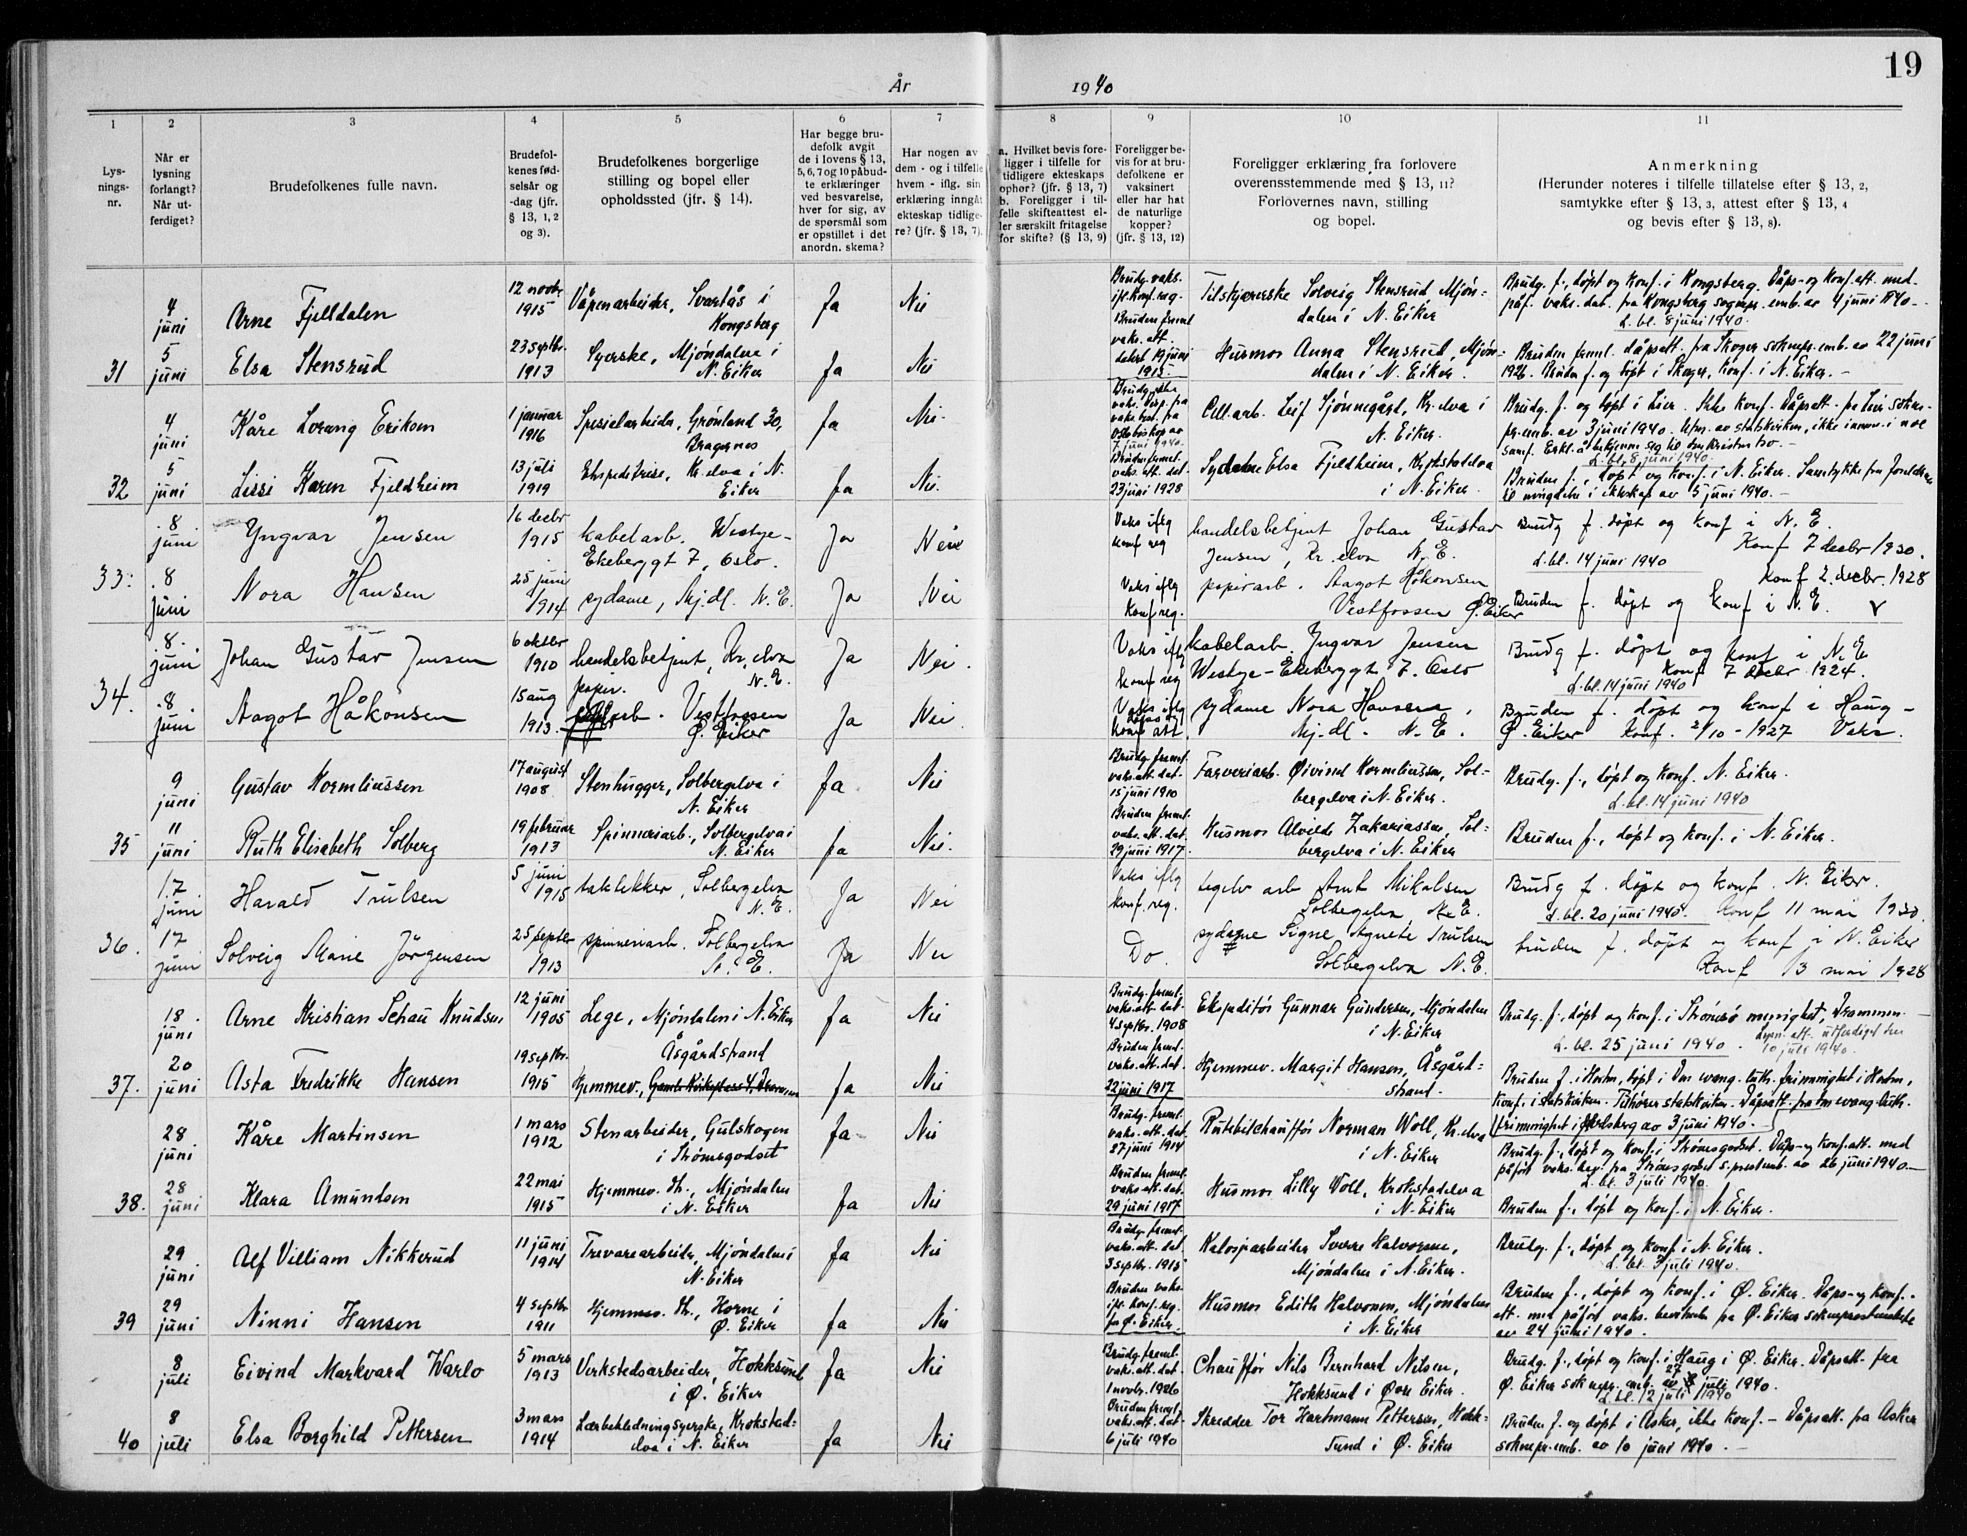 19
År 1940
1 2 3 4 5 6 7 8 9 10 11
Lys-
nings-
nr.
Når er
lysning
forlangt?
Når ut-
ferdiget?
Brudefolkenes fulle navn.
Brudefol-
kenes fød-
selsår og
-dag (jfr.
§ 13, 1, 2
og 3).
Brudefolkenes borgerlige
stilling og bopel eller
opholdssted (jfr. § 14).
Har begge bru-
defolk avgit
de i lovens § 13,
5, 6, 7 og 10 påbud-
te erklæringer
ved besvarelse,
hver for sig, av
de spørsmål som
er opstillet i det
anordn. skema?
Har nogen av
dem - og i tilfelle
hvem - iflg. sin
erklæring inngåt
ekteskap tidlige-
re? (jfr. § 13, 7).
a. Hvilket bevis fore-
ligger i tilfelle for
tidligere ekteskaps
ophør? (jfr. § 13, 7)
b. Foreligger i til-
felle skifteattest el-
ler særskilt fritagelse
for skifte? (§ 13, 9)
Foreligger be-
vis for at bru-
defolkene er
vaksinert
eller har hat
de naturlige
kopper?
(jfr. § 13, 12)
Foreligger erklæring fra forlovere
overensstemmende med § 13, 11?
Forlovernes navn, stilling
og bopel.
Anmerkning
(Herunder noteres i tilfelle tillatelse efter § 13, 2,
samtykke efter § 13, 3, attest efter § 13, 4
og bevis efter § 13, 8).
4
juni
Arne Fjelldalen
12 novbr
1915
Våpenarbeider, Svartås i
Kongsberg
Ja
Nei
Brudg. vaks.
ifl. konf. reg.
Tilskjærerske Solveig Stensrud Mjøn-
dalen i N. Eiker
Brudg. f., døpt og konf. i Kongsberg. Dåps- og konf. att. med
påf. vaks. dat. fra Kongsberg sognepr. emb. av 4 juni 1940.-
L. bl. 8 juni 1940.
31
5
juni
Elsa Stensrud
23 septbr.
1913
Syerske, Mjøndalen i
N. Eiker
Ja
Nei
Bruden freml.
vaks. att.
datert 19 juni
1915.
Husmor Anna Stensrud, Mjøn-
dalen i N. Eiker.
Bruden freml. dåpsatt. fra Skoger soknepr. emb. av 22 juni
1926. Bruden f. og døpt i Skoger, konf. i N. Eiker.-
4
juni
Kåre Lorang Eriksen
1 januar
1916
Spesialarbeider, Grønland 30,
Bragernes
Ja
Nei.
vaks. disp. fra
Oslo biskop av
7 juni 1940.
Cell.arb. Leif Sjønnegård, Kr.elva i
N. Eiker.
Brudg. f. og døpt i Lier. Ikke konf. Dåpsatt. fra Lier sokne-
pr. emb. av 3 juni 1940. Utm. av statskirken, ikke innm. i noe
samf. Erkl. å bekjenne seg til den kristne tro.-
L. bl. 8 juni 1940.
32
5
juni
Lissi Karen Fjeldheim
13 juli
1919
Ekspeditrise, Kr.elva i N.
Eiker
Ja
Nei.
Bruden freml.
vaks. att. dat.
23 juni 1928
Sydame Elsa Fjeldheim, Krokstadelva
i N. Eiker.
Bruden f., døpt og konf. i N. Eiker. Samtykke fra foreldrene
til inngåelse i ekteskap av 5 juni 1940.-
8.
juni
Yngvar Jensen
16 decbr
1915
kabelarb. Westye-
Ekebergt 7, Oslo.
Ja
Nei
Vaks iflg
konf reg
handelsbetjent Johan Gustav
Jensen, Kr. elva N. E.
Brudg f. døpt og konf i N. E.
Konf 7 decbr 1930.
L. bl. 14 juni 1940
33.
8
juni
Nora Hansen
25 juni
1914
sydame, Mj.dl. N. E.
Ja
Nei
Vaks iflg
konf reg.
papirarb. Aagot Håkonsen
Vestfossen Ø. Eiker
Konf 2. decbr. 1928
Bruden f. døpt og konf i N. E.
8.
juni
Johan Gustav Jensen
6 oktbr
1910
handelsbetjent, Kr. elva
N. E.
Ja
Nei.
Vaks iflg
konf reg
kabelarb. Yngvar Jensen
Westye-Ekebergt 7. Oslo
Brudg f. døpt og konf i N. E
Konf 7 decbr 1924.
L. bl. 14 juni 1940
34.
8
juni
Aagot Håkonsen
15 aug
1913.
papir.
arb. Vestfossen
Ø. Eiker
Ja
Nei.
Vaks iflg
konf att
sydame Nora Hansen,
Mj.dl. N. E.
Bruden f. døpt og konf i Haug-
Ø. Eiker Konf. 2/10-1927 Vaks.
9
juni
Gustav Kormeliussen
17 august
1908
Stenhugger, Solbergelva i
N. Eiker
Ja
Nei
Brudg. freml.
vaks. att. dat.
15 juni 1910
Farveriarb. Øivind Kormeliussen, Sol-
bergelva i N. Eiker.
Brudg. f., døpt og konf. N. Eiker.
L. bl. 14 juni 1940
35
11
juni
Ruth Elisabeth Solberg
19 februar
1913
Spinneriarb., Solbergelva i
N. Eiker
Ja
Nei.
Bruden freml.
vaks. att. dat.
29 juni 1917.
Husmor Alvilde Zakariassen, Sol-
bergelva i N. Eiker
Bruden f., døpt og konf. i N. Eiker.
17
juni
Harald Trulsen
5 juni
1915
taktekker, Solbergelva
N. E.
Ja
Nei
Vaks iflg
konf. reg.
teglv arb Arnt Mikalsen
Solbergelva, N. E.
Brudg f. døpt og konf. N. Eiker.
L. bl. 20 juni 1940. Konf 11 mai 1930.
36.
17
juni
Solveig Marie Jörgensen
25 septbr
1913
spinneriarb. Solbergelva
N. E.
Ja
Nei
Do.
sydame Signe Agnete Trulsen
Solbergelva N. E.
bruden f. døpt og konf i N. Eiker
Konf 13 mai 1928
18.
juni
Arne Kristian Schau Knudsen
12 juni
1905
Lege, Mjøndalen i N. Eiker
Ja
Nei
Brudg. freml.
vaks. att. dat.
4 septbr. 1908
Ekspeditør Gunnar Gundersen, Mjøndalen
i N. Eiker
Brudg. f., døpt og konf. i Strømsø menighet, Drammen.
L. bl. 25 juni 1940. Lysn. att. utferdiget den
10 juli 1940.
37.
20
juni
Asta Fredrikke Hansen
19 septbr.
1915
Åsgårdstrand
Hjemmev.,
Ja
Nei
Bruden freml.
vaks. att. dat.
22 juni 1917
Hjemmev. Margit Hansen, Åsgård-
strand.
Bruden f. i Horten, døpt i Den evang. luth. frimenighet i Horten,
konf. i statskirken. Tilhører statskirken. Dåpsatt. fra den evang. luth.
frimenighet i Jarlsberg av 3 juni 1940.-
28
juni
Kåre Martinsen
1 mars
1912
Stenarbeider, Gulskogen
i Strømsgodset
Ja
Nei
Brudg. freml.
vaks. att. dat.
27 juni 1914
Rutebilchauffør Norman Woll, Kr.elva
i N. Eiker
Brudg. f., døpt og konf. i Strømsgodset. Dåps- og konf. att. med
påført vaks. bev. fra Strømsgodset s. prestemb. av 26 juni 1940.-
L. bl. 3 juli 1940.
38.
28
juni
Klara Amundsen
22 mai
1915
Hjemmev. Th., Mjøndalen
i N. Eiker
Ja
Nei
Bruden freml.
vaks. att. dat.
29 juni 1917.
Husmor Lilly Woll, Krokstadelva
i N. Eiker
Bruden f., døpt og konf. i N. Eiker.
29
juni
Alf Villiam Nikkerud
11 juni
1914
Trevarearbeider, Mjøndalen i
N. Eiker
Ja
Nei
Brudg. freml.
vaks. att. dat.
3 septbr. 1915
Kalosjarbeider Sverre Halvorsen,
Mjøndalen i N. Eiker.
Brudg. f., døpt og konf i N. Eiker.
L. bl. 3 juli 1940.
39
29
juni
Ninni Hansen
4 septbr
1911
Hjemmev. Th., Horne i
Ø. Eiker
Ja
Nei
Bruden vaks.
ifl. konf. reg.
fra Ø. Eiker.
Husmor Edith Halvorsen, Mjøndalen
i N. Eiker
Bruden f., døpt og konf. i Ø. Eiker. Dåps- og konf.-
att. med påført vaks. bevitnelse fra Ø. Eiker sokneprestembete
av 24 juni 1940.
8
juli
Eivind Markvard Warlo
5 mars
1913
Verkstedsarbeider, Hokksund
i Ø. Eiker
Ja
Nei
Brudg. freml.
vaks. att. dat.
1 novbr. 1920
Chauffør Nils Bernhard Nilsen,
Hokksund i Øvre Eiker.
Brudg. f., døpt og konf. i Haug i Ø. Eiker. Dåpsatt. fra
Ø. Eiker soknepr. emb. av juli 1940.
L. bl. 12 juli 1940
40
8
juli
Elsa Borghild Pettersen
3 mars
1914
Lærbekledningsyerske, Krokstad-
elva i N. Eiker
Ja
Nei
Bruden freml.
vaks. att. dat.
6 juli 1940
Skredder Tor Hartmann Pettersen, Hokk-
sund i Ø. Eiker
Bruden f. og døpt i Asker, ikke konf.- Dåpsatt. fra Asker
soknepr. emb. av 10 juni 1940.-